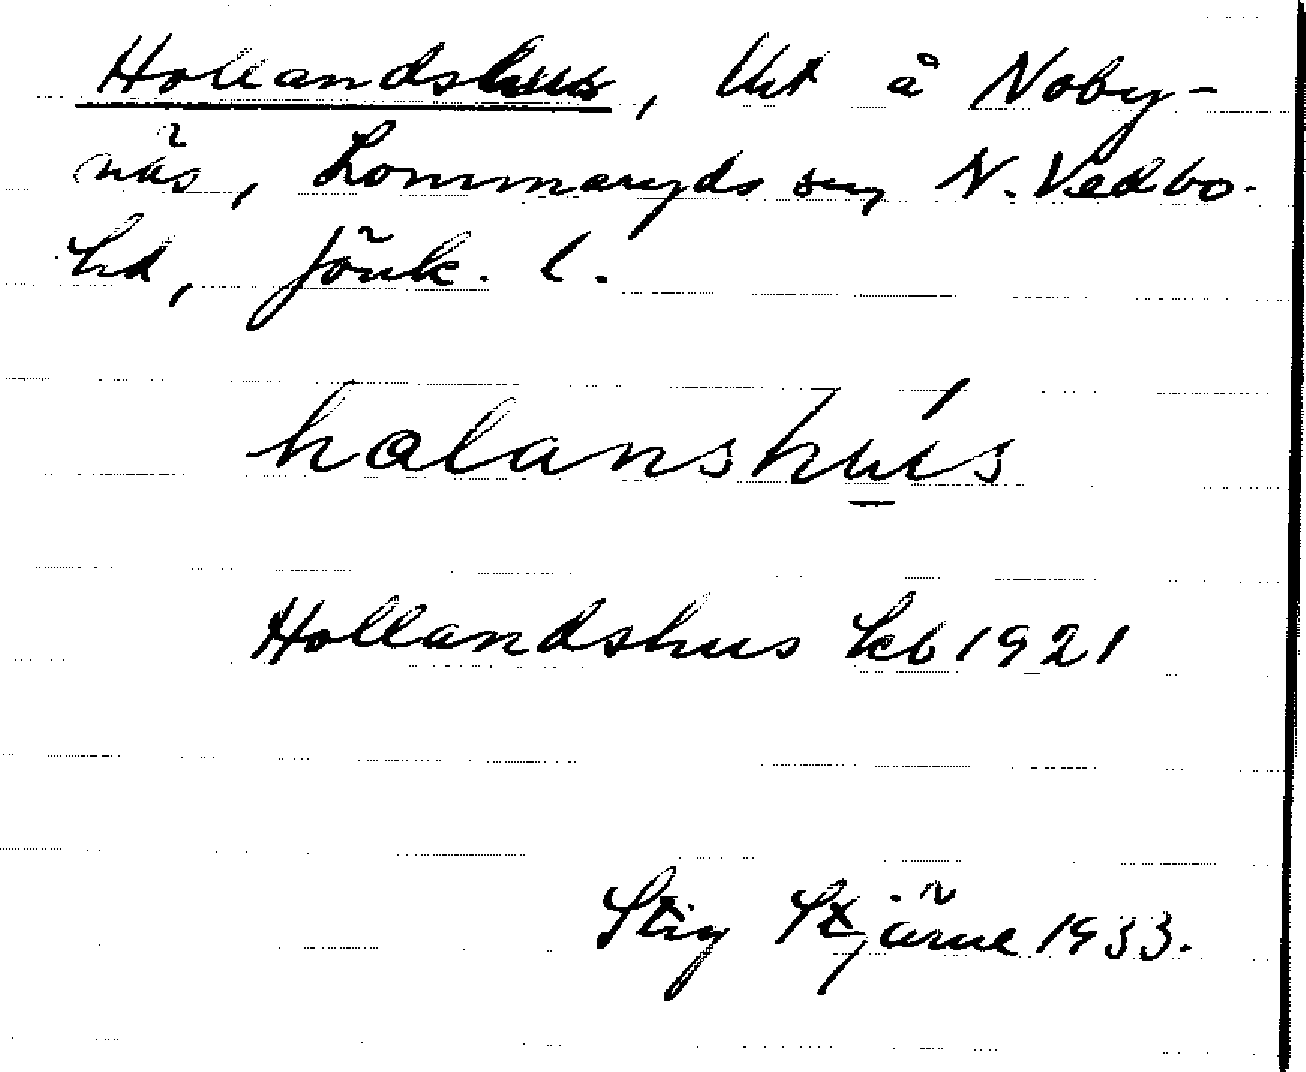 Hollandshus, Uht å Noby-
näs, Lommaryds sn, N. Vedbo
hd, Jönk. l.
halanshús
Hollandshus kb 1921
Stig Stjärne 1933.